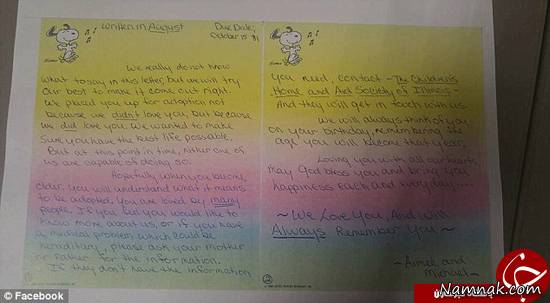 written in August
Due Date;
October 15 '81
We really do not know
what to say in this letter, but we will try
our best to make it come out right.
We placed you up for adoption not
because we didn't love you, but because
we did love you. We wanted to make
sure you have the best life possible.
But at this point in time, neither one of
us are capable of doing so.
Hopefully when you become
older, you will understand what it means
to be adopted. You are loved by many
people. If you feel you would like to
know more about us, or if you have
a medical problem which could be
hereditary, please ask your mother
or father for the information.
If they don't have the information
you need, contact - The Children's
Home and Aid Society of Illinois -
And they will get in touch with us.
We will always think of you
on your birthday, remembering the
age you will become that year.
Loving you with all our hearts,
may God bless you and bring you
happiness each and everyday....
~ We Love You, And Will
Always Remember You ~
- Aimee and
Michael -
f Facebook
Namnak.com